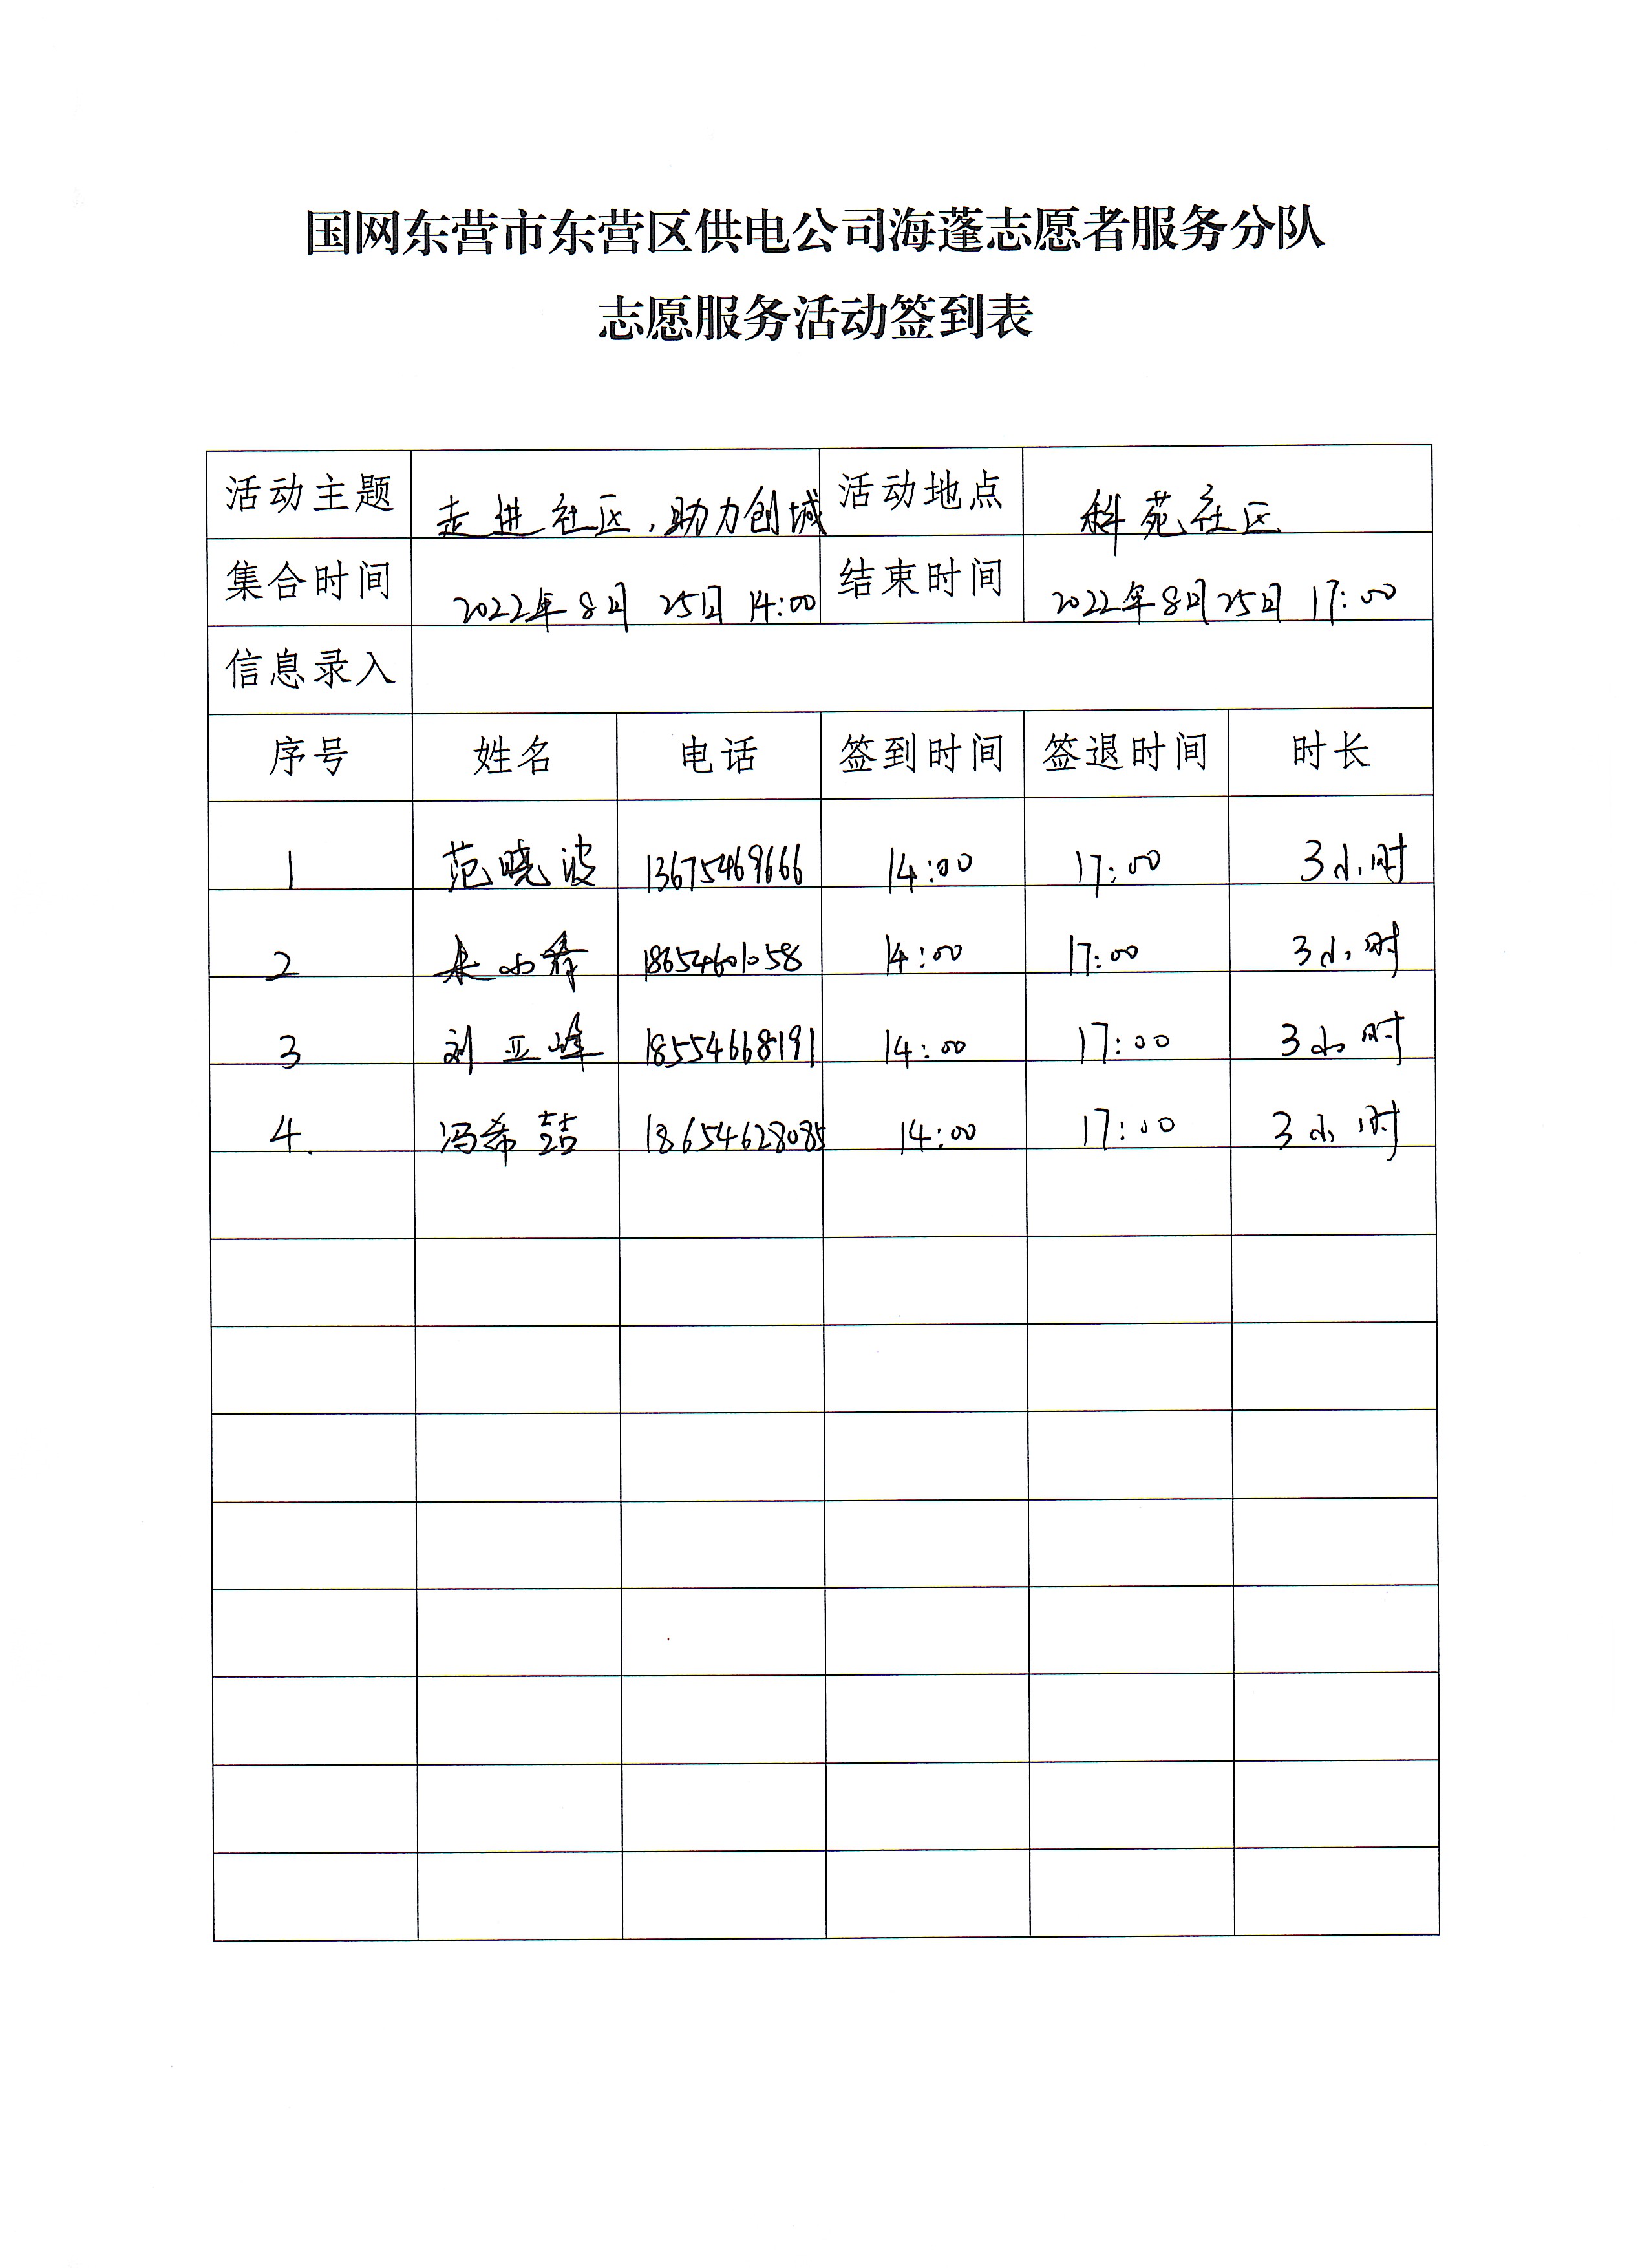 国网东营市东营区供电公司海蓬志愿者服务分队
志愿服务活动签到表
活动主题 走进社区,助力创城 活动地点 科苑社区
集合时间 2022年8月 25日 14:00 结束时间 2022年8月25日 17:00
信息录入
序号 姓名 电话 签到时间 签退时间 时长
1 范晓波 13675469666 14:00 17:00 3小时
2 小春 18654601058 14:00 17:00 3小时
3 刘亚峰 18554668191 14:00 17:00 3小时
4. 冯希喆 18654628085 14:00 17:00 3小时